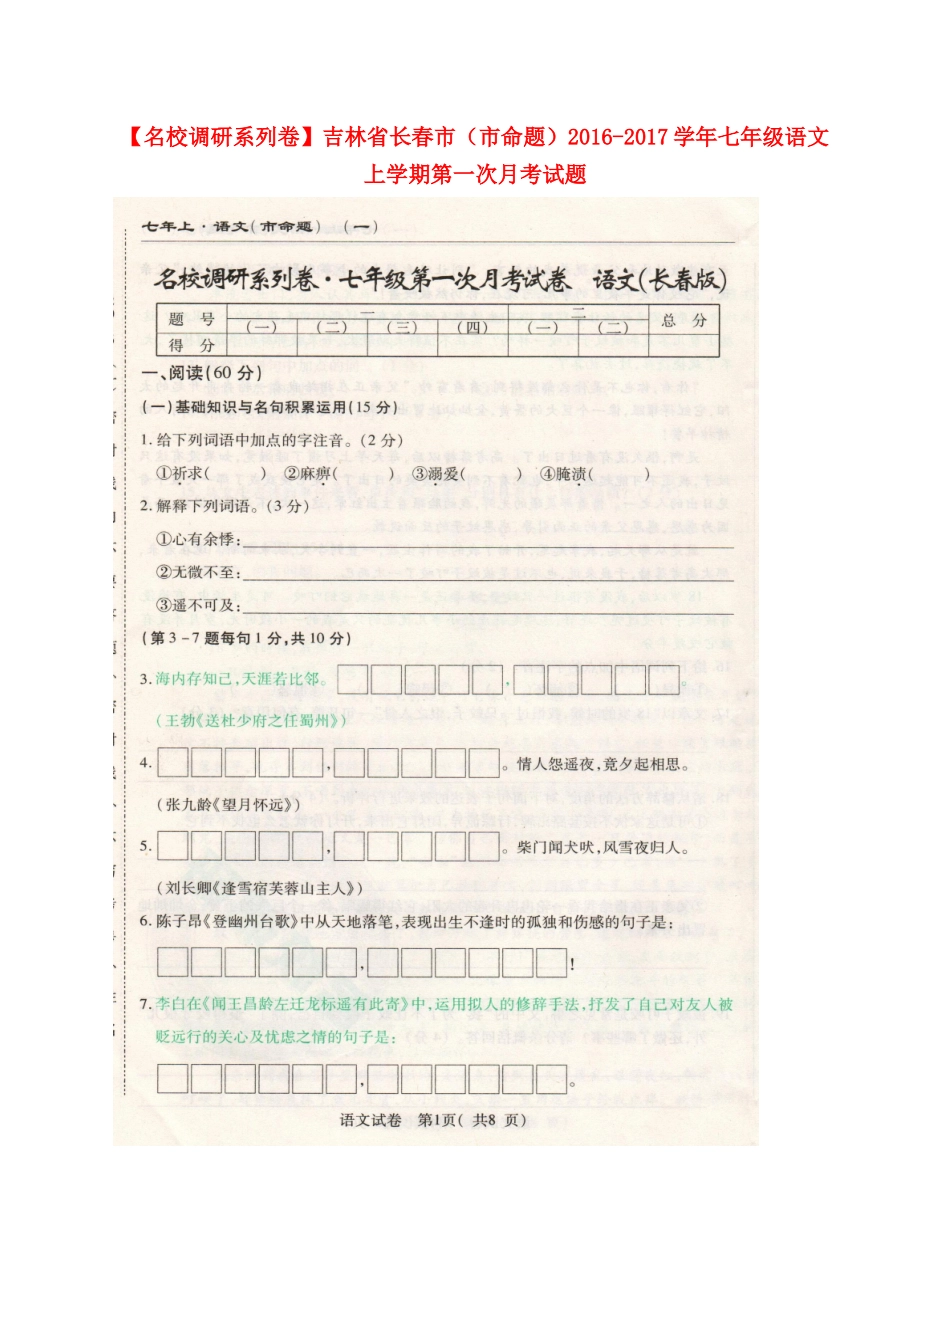 【名校调研系列卷】吉林省长春市（市命题）2016-2017 学年七年级语文
上学期第一次月考试题
七年上·语文(市命题) (一)
名校调研系列卷·七年级第一次月考试卷 语文(长春版)
题 号 一 二 总 分
(一) (二) (三) (四) (一) (二)
得 分
一、阅读(60分)
(一)基础知识与名句积累运用(15分)
1.给下列词语中加点的字注音。(2分)
①祈求( ) ②麻痹( ) ③溺爱( ) ④腌渍( )
2.解释下列词语。(3分)
①心有余悸:
②无微不至:
③遥不可及:
(第3-7题每句1分,共10分)
3.海内存知己,天涯若比邻。 , 。
(王勃《送杜少府之任蜀州》)
4. , 。情人怨遥夜,竟夕起相思。
(张九龄《望月怀远》)
5. , 。柴门闻犬吠,风雪夜归人。
(刘长卿《逢雪宿芙蓉山主人》)
6.陈子昂《登幽州台歌》中从天地落笔,表现出生不逢时的孤独和伤感的句子是:
, !
7.李白在《闻王昌龄左迁龙标遥有此寄》中,运用拟人的修辞手法,抒发了自己对友人被
贬远行的关心及忧虑之情的句子是:
, 。
语文试卷 第1页( 共8 页)